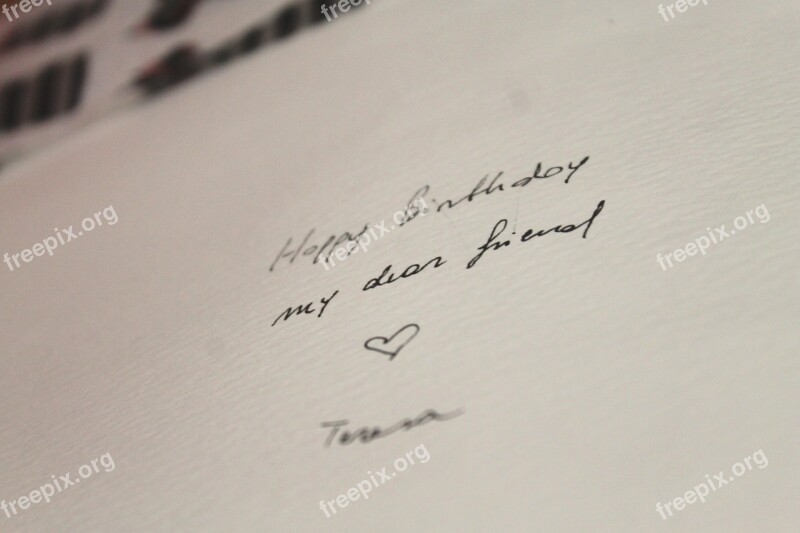 Happy birthday
my dear friend
♡
Teresa
freepix.org
freepix.org
freepix.org
freepix.org
freepix.org
freepix.org
freepix.org
freepix.org
freepix.org